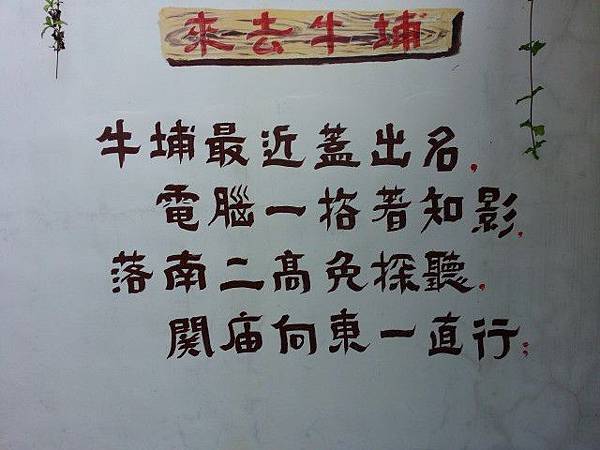 來去牛埔
牛埔最近蓋出名,
電腦一掊著知影.
落南二高免探聽.
関庙向東一直行: